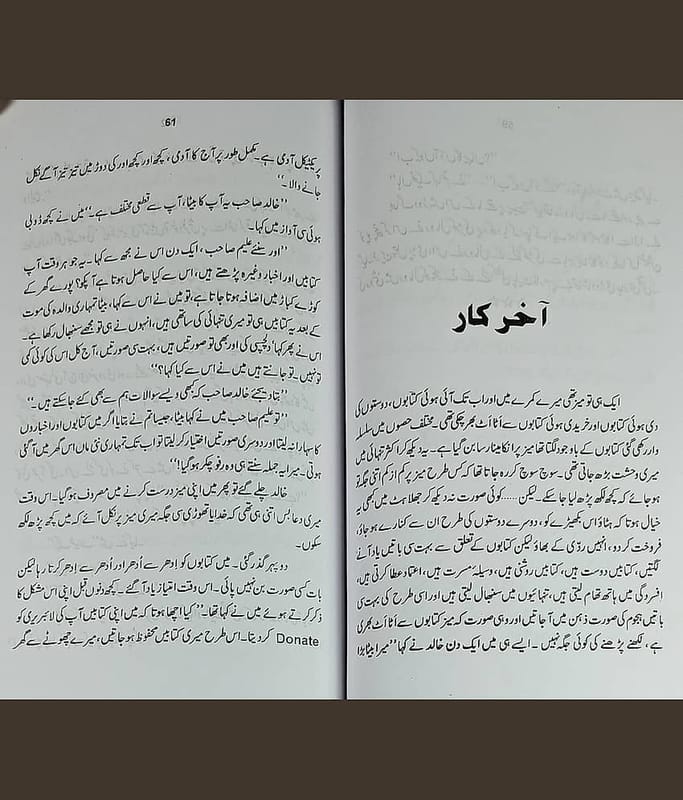 آخر کار
ایک ہی تو میز تھی میرے کمرے میں اور اب تک آئی ہوئی کتابوں، دوستوں کی
دی ہوئی کتابوں اور خریدی ہوئی کتابوں سے اٹا اٹ بھر چکی تھی۔ مختلف حصوں میں سلسلہ
وار رکھی گئی کتابوں کے باوجود لگتا تھا میز پر اک مینار سا بن گیا ہے۔ یہ دیکھ کر اکثر تنہائی میں
میری وحشت بڑھ جاتی تھی۔ سوچ سوچ کر رہ جاتا تھا کہ کس طرح میز پر کم از کم اتنی جگہ تو
ہو جائے کہ کچھ لکھ پڑھ لیا جا سکے۔ لیکن ..... کوئی صورت نہ دیکھ کر جھلاہٹ میں کبھی یہ
خیال ہوتا کہ ہٹاؤ اس بکھیڑے کو، دوسرے دوستوں کی طرح ان سے کنارے ہو جاؤ،
فروخت کر دو، انہیں ردّی کے بھاؤ لیکن کتابوں کے تعلق سے بہت سی باتیں یاد آنے
لگتیں، کتابیں دوست ہیں، کتابیں روشنی ہیں، وسیلۂ مسرت ہیں، اعتماد عطا کرتی ہیں،
افسردگی میں ہاتھ تھام لیتی ہیں، تنہائیوں میں سنبھال لیتی ہیں اور اسی طرح کی بہت سی
باتیں ہجوم کی صورت ذہن میں آ جاتیں اور وہی صورت کہ میز کتابوں سے اٹا اٹ بھری
ہے، لکھنے پڑھنے کی کوئی جگہ نہیں۔ ایسے ہی میں ایک دن خالد نے کہا ”میرا بیٹا بڑا
61
پریکٹیکل آدمی ہے۔ مکمل طور پر آج کا آدمی، کچھ اور کچھ اور کی دوڑ میں تیز تیز آگے نکل
جانے والا۔“
”خالد صاحب یہ آپ کا بیٹا، آپ سے قطعی مختلف ہے۔“ میں نے کچھ ڈوبی
ہوئی سی آواز میں کہا۔
”اور سنئے علیم صاحب، ایک دن اس نے مجھ سے کہا۔ یہ جو ہر وقت آپ
کتابیں اور اخبار وغیرہ پڑھتے ہیں، اس سے کیا حاصل ہوتا ہے آپکو؟ پورے گھر کے
کوڑے کباڑ میں اضافہ ہوتا جاتا ہے، تو میں نے اس سے کہا، بیٹا تمہاری والدہ کی موت
کے بعد یہ کتابیں ہی تو میری تنہائی کی ساتھی ہیں، انہوں نے ہی تو مجھے سنبھال رکھا ہے۔
اس نے پھر کہا‘ دلچسپی کی اور بھی تو صورتیں ہیں، بہت سی صورتیں، آج کل اس کی کوئی کمی
تو نہیں۔ تو جانتے ہیں میں نے اس سے کیا کہا؟“
”بتا دیجئے خالد صاحب کہ کبھی ویسے سوالات ہم سے بھی کئے جا سکتے ہیں۔“
”تو علیم صاحب میں نے کہا بیٹا، جیسا تم نے بتایا اگر میں کتابوں اور اخباروں
کا سہارا نہ لیتا اور دوسری صورتیں اختیار کر لیتا تو اب تک تمہاری نئی ماں اس گھر میں آ گئی
ہوتی۔ میرا یہ جملہ سنتے ہی وہ رفو چکر ہو گیا!“
خالد چلے گئے تو پھر میں اپنی میز درست کرنے میں مصروف ہو گیا۔ اس وقت
میری دعا بس اتنی ہی تھی کہ خدایا تھوڑی سی جگہ میری میز پر نکل آئے کہ میں کچھ پڑھ لکھ
سکوں۔
دوپہر گذر گئی۔ میں کتابوں کو اِدھر سے اُدھر اور اُدھر سے اِدھر کرتا رہا لیکن
بات کسی صورت بن نہیں پائی۔ اس وقت امتیاز یاد آ گئے۔ کچھ دنوں قبل اپنی اس مشکل کا
ذکر کرتے ہوئے میں نے کہا تھا۔ ”کیا اچھا ہوتا کہ میں اپنی کتابیں آپ کی لائبریری کو
Donate کر دیتا۔ اس طرح میری کتابیں محفوظ ہو جاتیں، میرے چھوٹے سے گھر